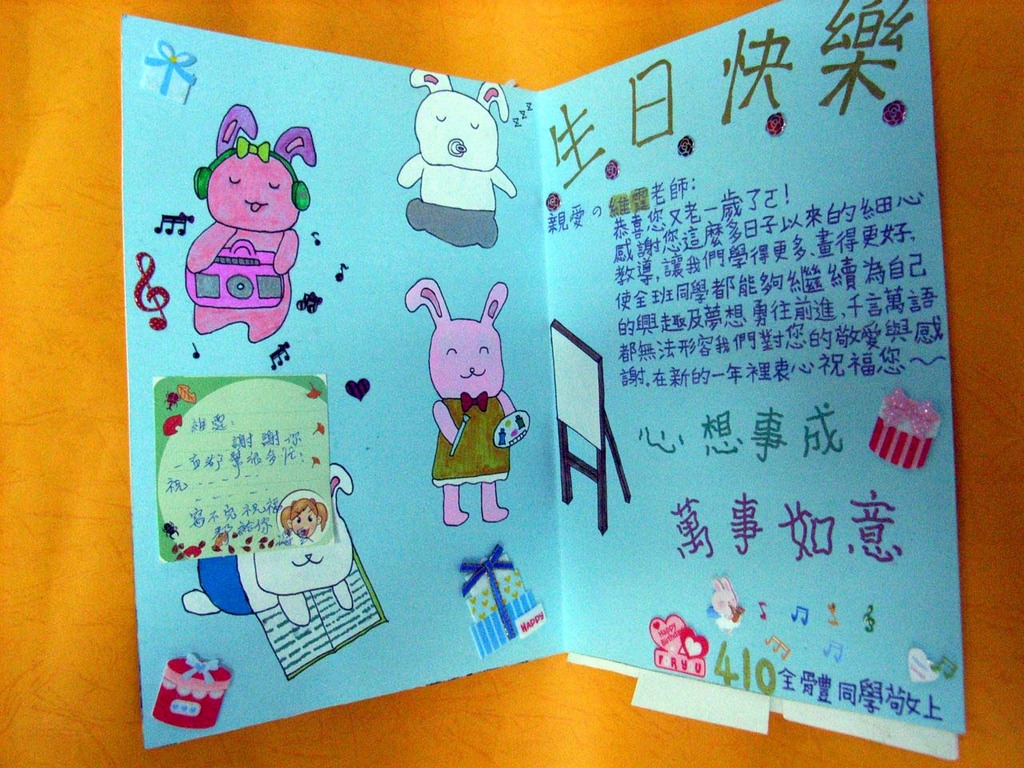 zzz
維靈:
謝謝你
一直都幫很多忙!
祝------
寫不完祝福
都給你
HAPPY
生日快樂
親愛の維靈老師:
恭喜您又老一歲了ㄛ!
感謝您這麼多日子以來的細心
教導,讓我們學得更多.畫得更好.
使全班同學都能夠繼續為自己
的興趣及夢想勇往前進,千言萬語
都無法形容我們對您的敬愛與感
謝.在新的一年裡衷心祝福您~~
心想事成
萬事如意
Happy Birthday
FOR YOU
410全體同學敬上